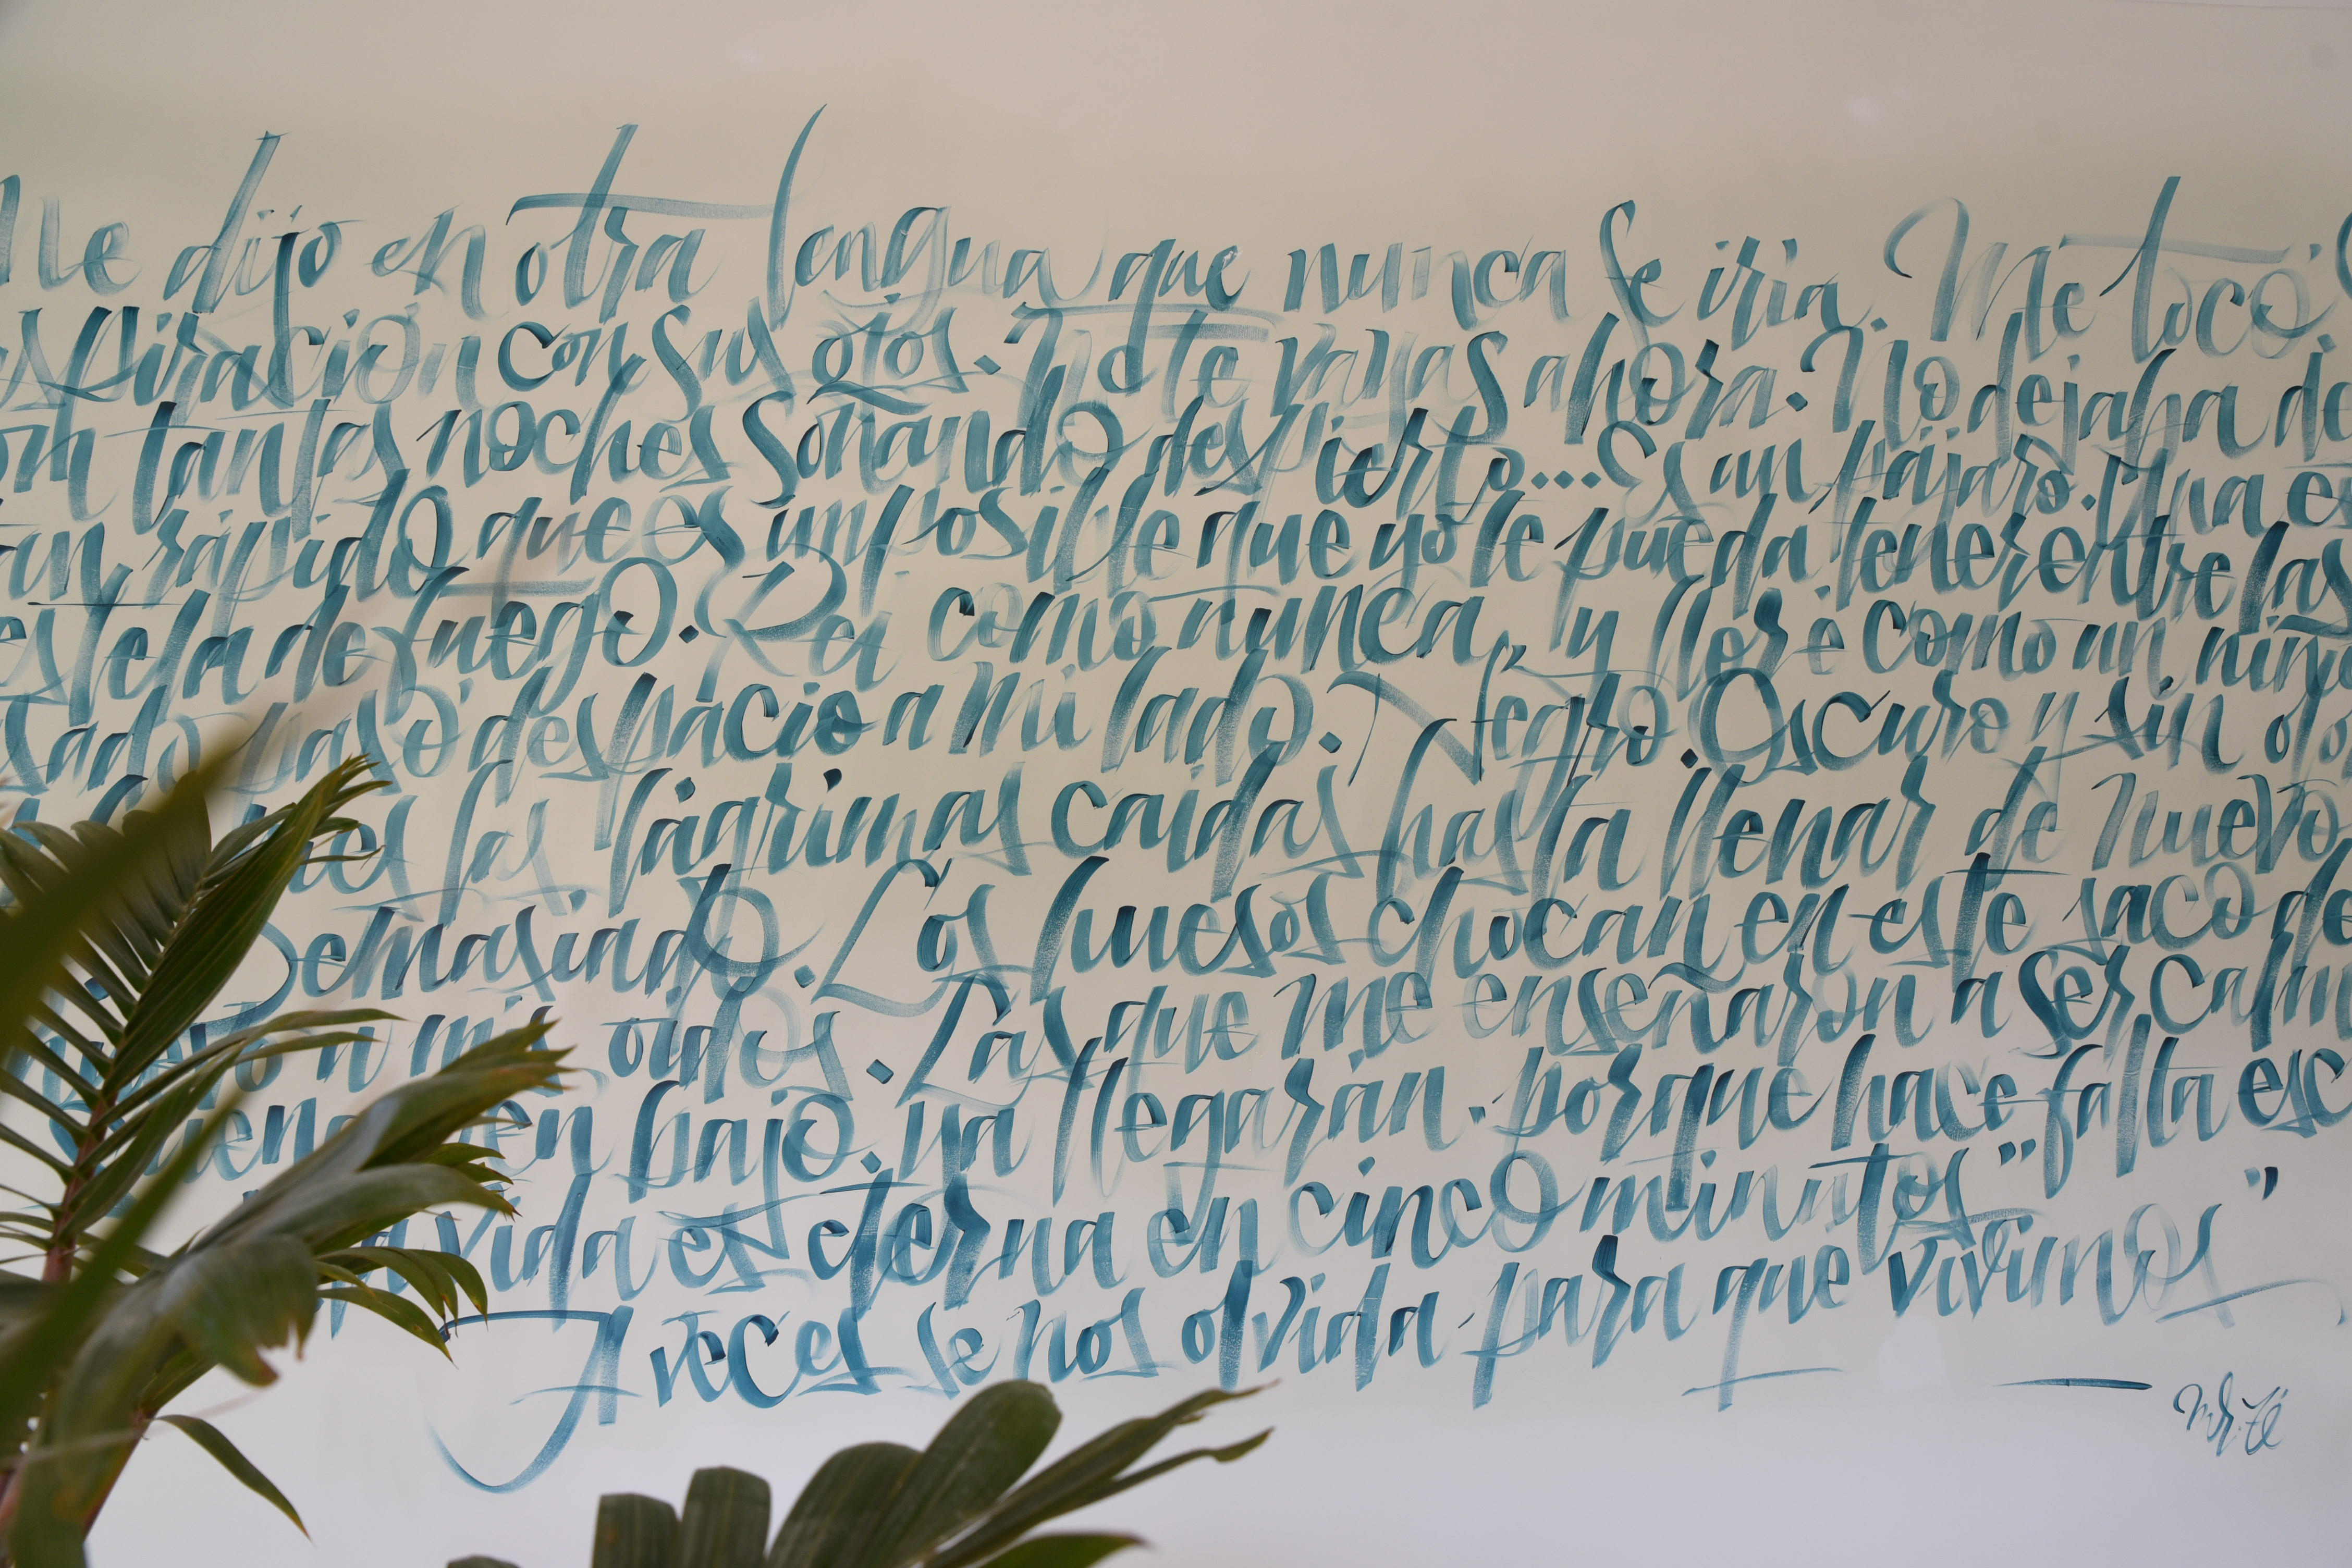 Me dijo en otra lengua que nunca se iria. Me tocó
spiración con sus ojos. No te vayas ahora. No dejaba de
tantas noches soñando despierto... Es un pájaro. Una
rápido que es imposible que yo le pueda tener entre las
estela de fuego. Reí como nunca, y lloré como un niño
sado pasó despacio a mi lado. Negro. Oscuro y sin
las lágrimas caídas hasta llenar de nuevo
Demasiado. Los huesos chocan en este saco de
a mis oídos. Las que me enseñaron a ser
bajo. ya llegarán. porque hace falta esc
vida es eterna en cinco minutos"
A veces se nos olvida para qué vivimos"
Mr. Zé